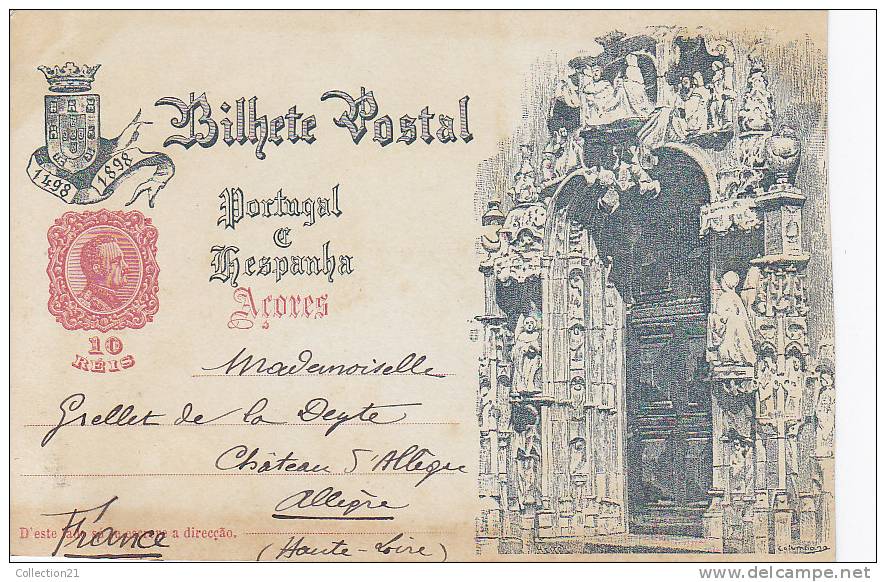 Bilhete Postal
1498 1898
Portugal
E
Hespanha
Açores
10
REIS
Mademoiselle
Grellet de la Deyte
Château d'Allègre
Allègre
(Haute-Loire)
France
D'este lado só se escreve a direcção.
Columbano
Collection21
delcampe.net